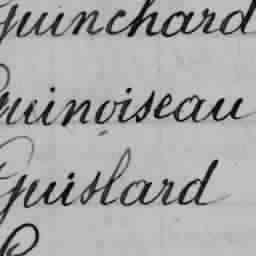 Guinchard
Guinoiseau
Guislard